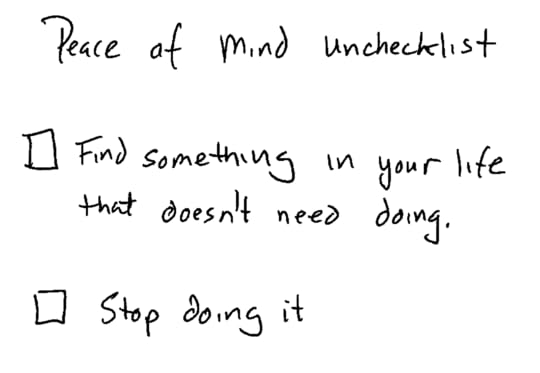 Peace of mind unchecklist
Find something in your life
that doesn't need doing.
Stop doing it